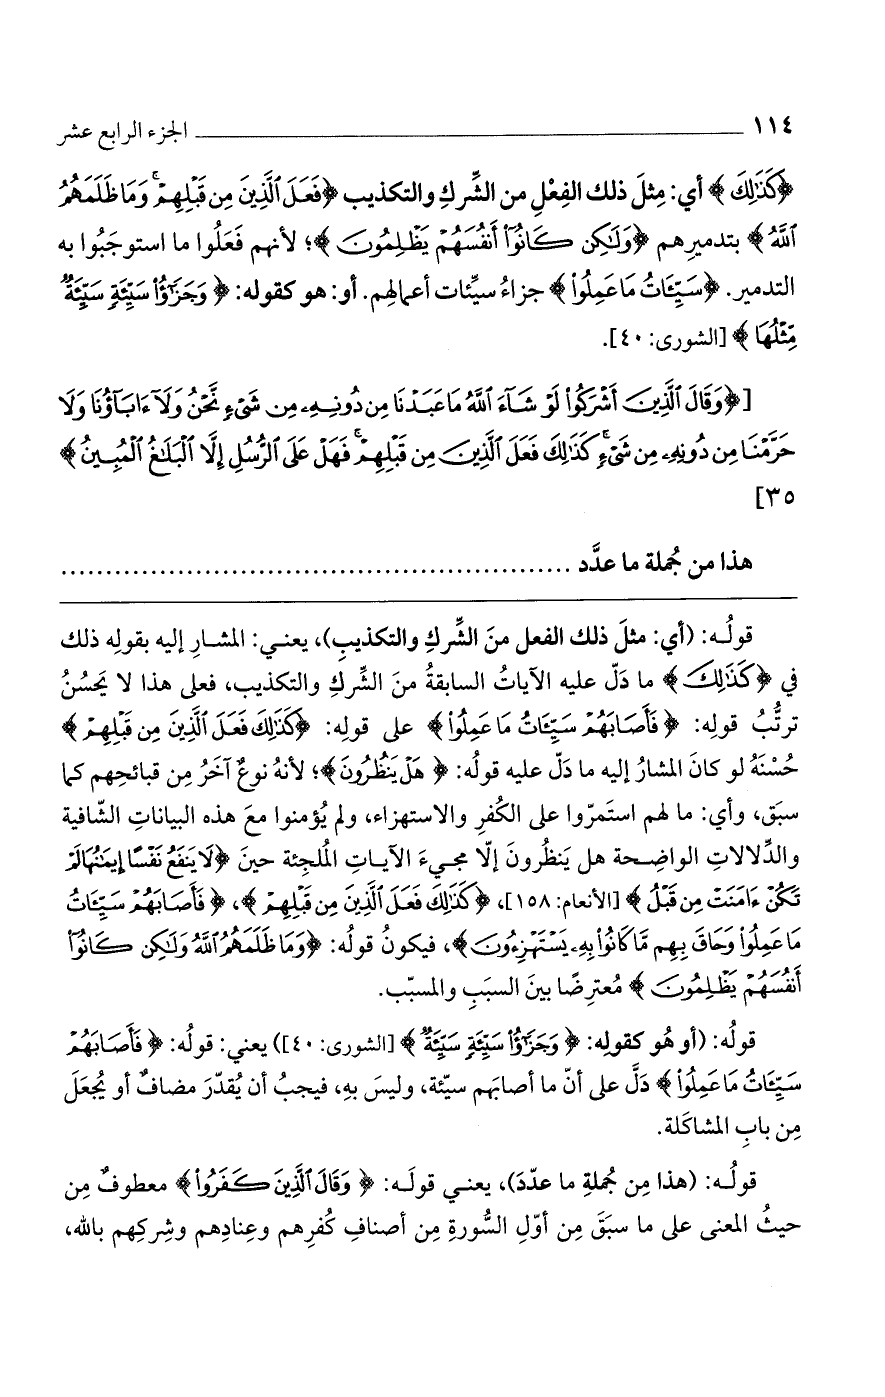 ١١٤ ــــــــــــــــــــــــــــــــــــ الجزء الرابع عشر
﴿كَذَٰلِكَ﴾ أي: مِثلَ ذلك الفِعْلِ من الشِّركِ والتكذيب ﴿فَعَلَ ٱلَّذِينَ مِن قَبْلِهِمْ ۚ وَمَا ظَلَمَهُمُ
ٱللَّهُ﴾ بتدميرِهم ﴿وَلَٰكِن كَانُوٓا۟ أَنفُسَهُمْ يَظْلِمُونَ﴾؛ لأنهم فَعَلُوا ما استوجَبُوا به
التدمير. ﴿سَيِّـَٔاتُ مَا عَمِلُوا۟﴾ جزاءُ سيِّئات أعمالِهم. أو: هو كقوله: ﴿وَجَزَٰٓؤُا۟ سَيِّئَةٍ سَيِّئَةٌ
مِّثْلُهَا﴾ [الشورى: ٤٠].
[﴿وَقَالَ ٱلَّذِينَ أَشْرَكُوا۟ لَوْ شَآءَ ٱللَّهُ مَا عَبَدْنَا مِن دُونِهِۦ مِن شَىْءٍ نَّحْنُ وَلَآ ءَابَآؤُنَا وَلَا
حَرَّمْنَا مِن دُونِهِۦ مِن شَىْءٍ ۚ كَذَٰلِكَ فَعَلَ ٱلَّذِينَ مِن قَبْلِهِمْ ۚ فَهَلْ عَلَى ٱلرُّسُلِ إِلَّا ٱلْبَلَٰغُ ٱلْمُبِينُ﴾
٣٥]
هذا من جُملة ما عدَّد ..........................................................
قولُـه: (أي: مثلَ ذلك الفعل منَ الشِّركِ والتكذيبِ)، يعنـي: المشـارِ إليه بقولِه ذلك
في ﴿كَذَٰلِكَ﴾ ما دَلّ عليه الآياتُ السابقةُ منَ الشِّركِ والتكذيب، فعلى هذا لا يَحسُنُ
ترتُّبُ قولِه: ﴿فَأَصَابَهُمْ سَيِّـَٔاتُ مَا عَمِلُوا۟﴾ على قولِه: ﴿كَذَٰلِكَ فَعَلَ ٱلَّذِينَ مِن قَبْلِهِمْ﴾
حُسْنَهُ لو كانَ المشارُ إليه ما دَلّ عليه قولُه: ﴿هَلْ يَنظُرُونَ﴾؛ لأنهُ نوعٌ آخَرُ مِن قبائحِهم كما
سبَق، وأي: ما لهم استَمرّوا على الكُفرِ والاستهزاء، ولم يُؤمنوا معَ هذه البيناتِ الشّافية
والدِّلالاتِ الواضِـحة هل يَنظُرونَ إلّا مجـيءَ الآيـاتِ المُلجِئة حينَ ﴿لَا يَنفَعُ نَفْسًا إِيمَٰنُهَا لَمْ
تَكُنْ ءَامَنَتْ مِن قَبْلُ﴾ [الأنعام: ١٥٨]، ﴿كَذَٰلِكَ فَعَلَ ٱلَّذِينَ مِن قَبْلِهِمْ﴾، ﴿فَأَصَابَهُمْ سَيِّـَٔاتُ
مَا عَمِلُوا۟ وَحَاقَ بِهِم مَّا كَانُوا۟ بِهِۦ يَسْتَهْزِءُونَ﴾، فيكونُ قولُه: ﴿وَمَا ظَلَمَهُمُ ٱللَّهُ وَلَٰكِن كَانُوٓا۟
أَنفُسَهُمْ يَظْلِمُونَ﴾ مُعترِضًا بينَ السبَبِ والمسبّب.
قولُه: (أو هُو كقولِه: ﴿وَجَزَٰٓؤُا۟ سَيِّئَةٍ سَيِّئَةٌ﴾ [الشورى: ٤٠]) يعني: قولُه: ﴿فَأَصَابَهُمْ
سَيِّـَٔاتُ مَا عَمِلُوا۟﴾ دَلَّ على أنّ ما أصابَهم سيّئة، وليسَ بهِ، فيجبُ أن يُقدّرَ مضافٌ أو يُجعَلَ
مِن بابِ المشاكَلة.
قولُـه: (هذا مِن جُملةِ ما عدّدَ)، يعنـي قولَـه: ﴿وَقَالَ ٱلَّذِينَ كَفَرُوا۟﴾ معطوفٌ مِن
حيثُ المعنى على ما سبَقَ مِن أوّلِ السُّورةِ مِن أصنافِ كُفرِهم وعِنادِهم وشِركِهم بالله،